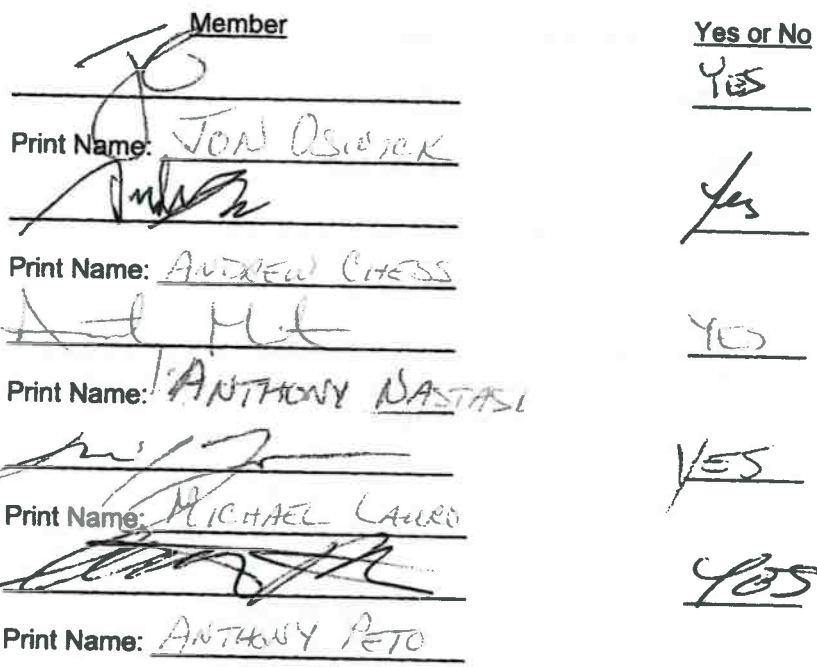 Member Yes or No
YES
Print Name: JON
Yes
Print Name: ANDREW CHESS
YES
Print Name: ANTHONY NASTASI
YES
Print Name: MICHAEL LAURO
YES
Print Name: ANTHONY PETO